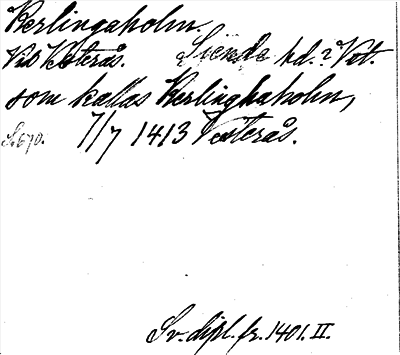 Kerlingaholm.
Vid Västerås. ? Siende hd.? Vst.
som kallas Kerlinghaholm,
S. 670. 7/7 1413 Västerås.
Sv. dipl. fr. 1401. II.